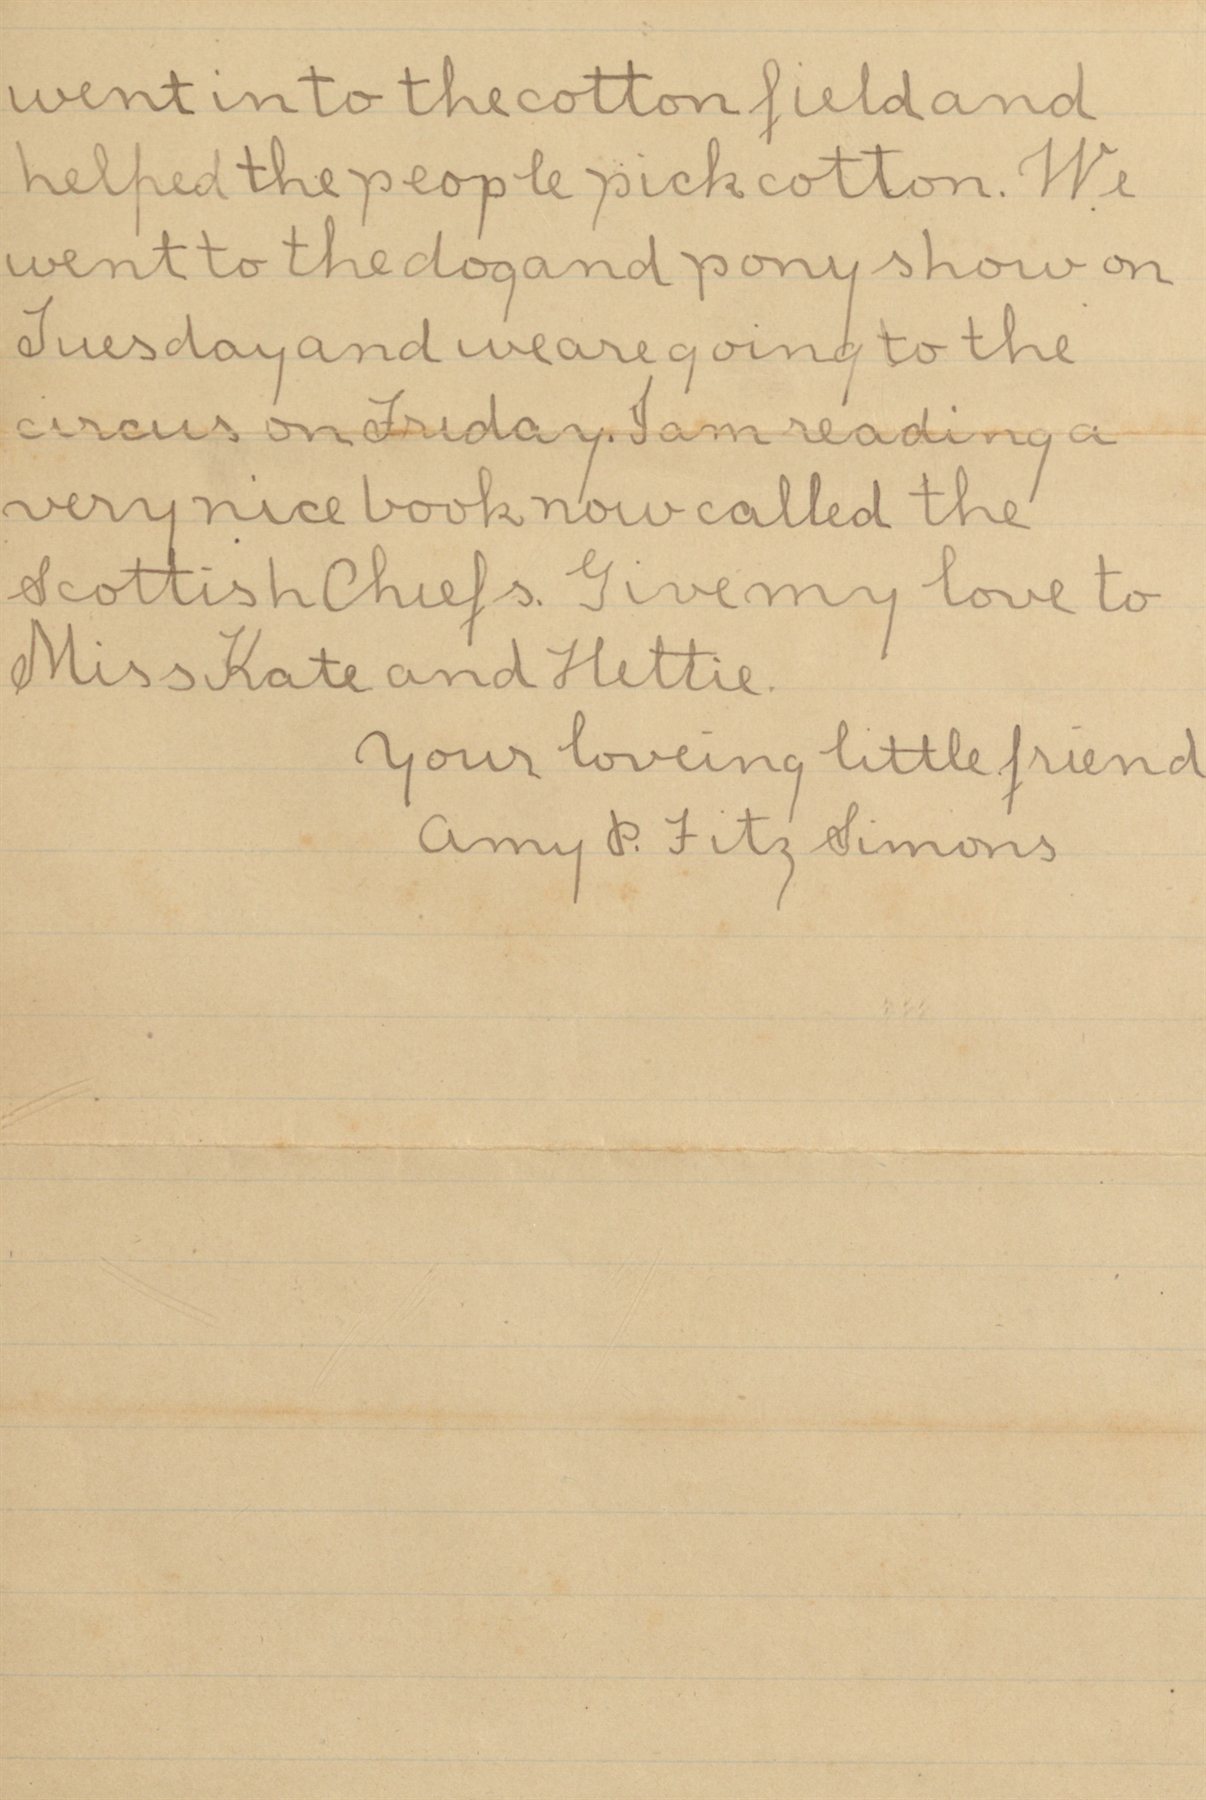 went into the cotton field and
helped the people pick cotton. We
went to the dog and pony show on
Tuesday and we are going to the
circus on Friday. I am reading a
very nice book now called the
Scottish Chiefs. Give my love to
Miss Kate and Hettie.
Your loveing little friend
Amy P. Fitz Simons